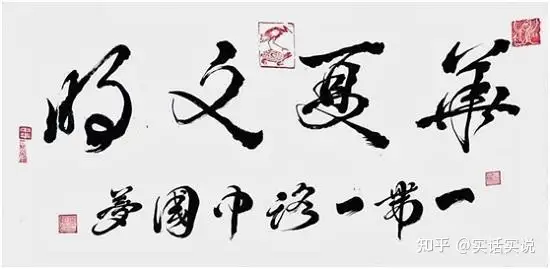 華夏文明
一带一路中国夢
知乎 @实话实说